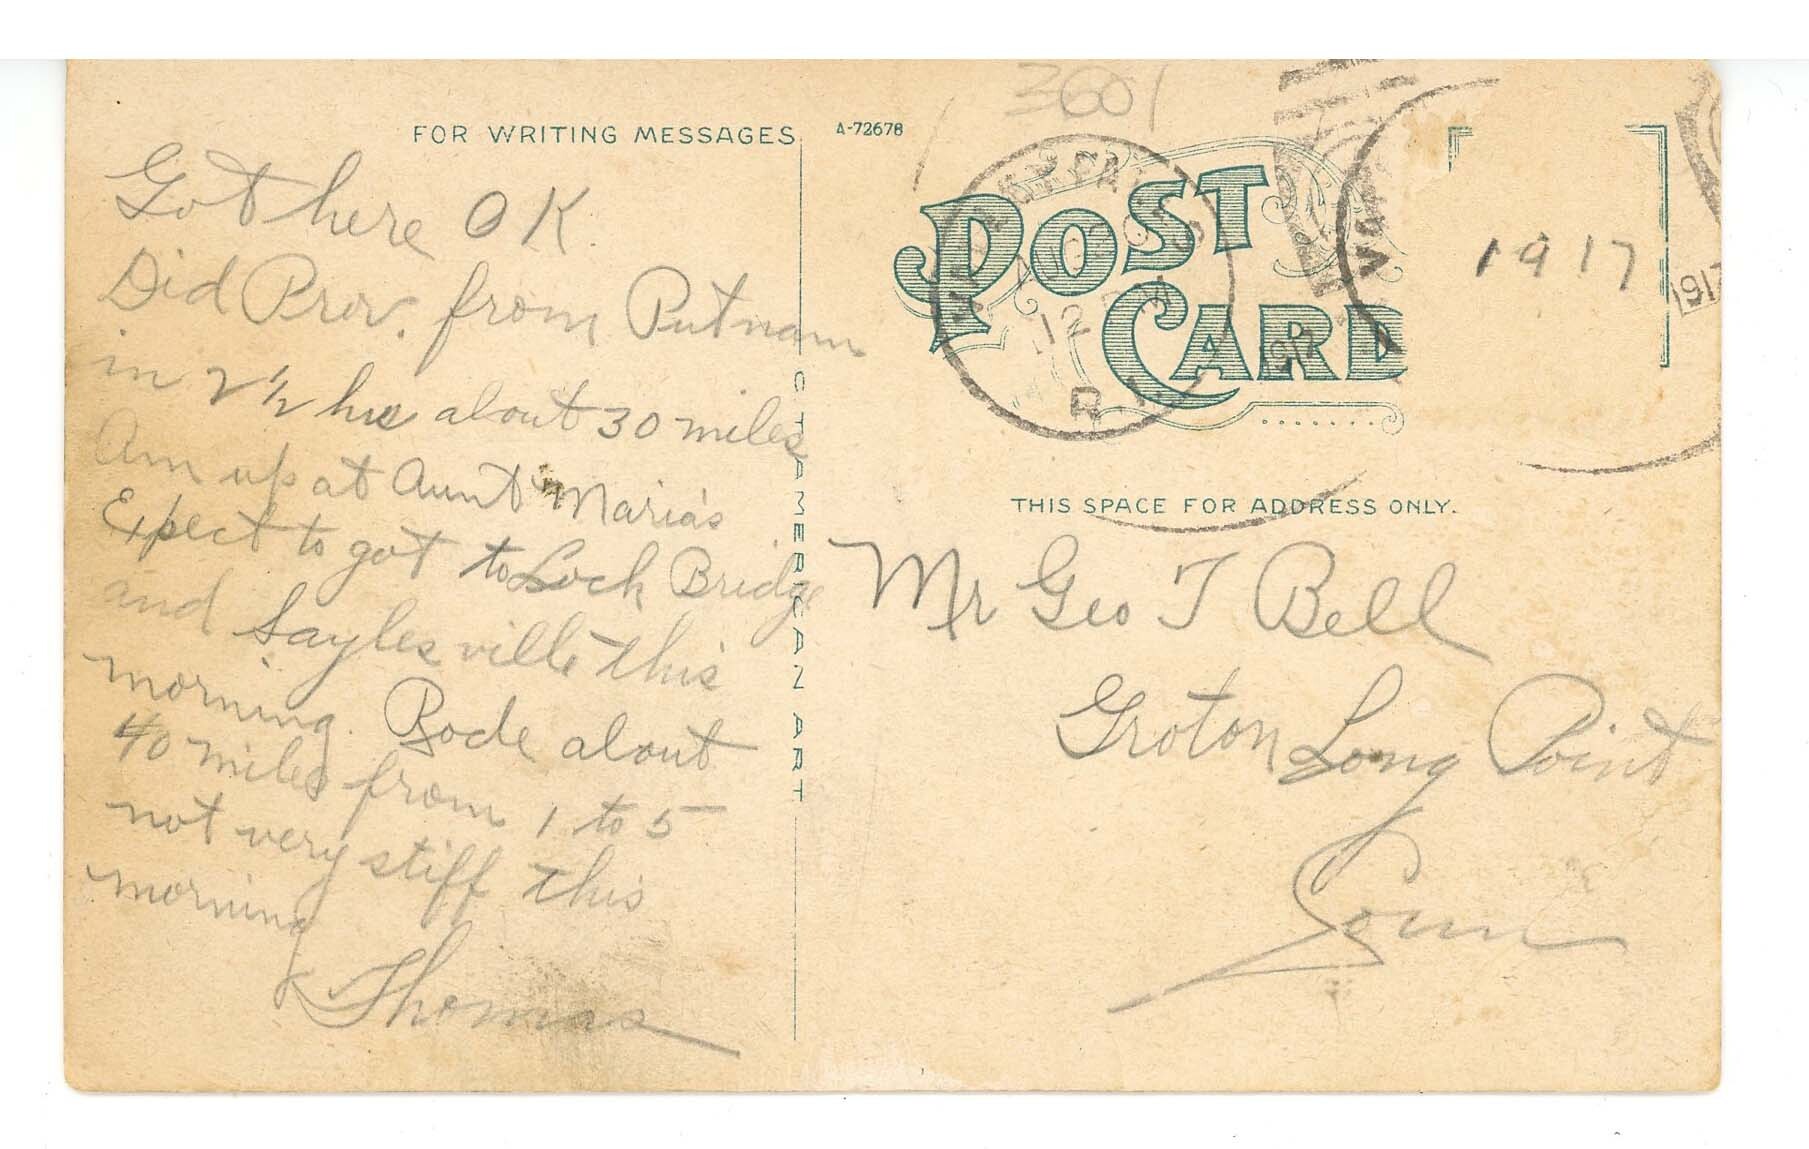 3601
FOR WRITING MESSAGES
A-72678
POST
CARD
AUG
12
R.I.
1917
1917
1917
Got here OK.
Did Prov. from Putnam
in 2 1/2 hrs about 30 miles
Am up at Aunt Maria's
Expect to got to Lock Bridge
and Saylesville this
morning. Rode about
40 miles from 1 to 5
not very stiff this
morning
Thomas
C.T. AMERICAN ART
THIS SPACE FOR ADDRESS ONLY.
Mr Geo T Bell
Groton Long Point
Conn